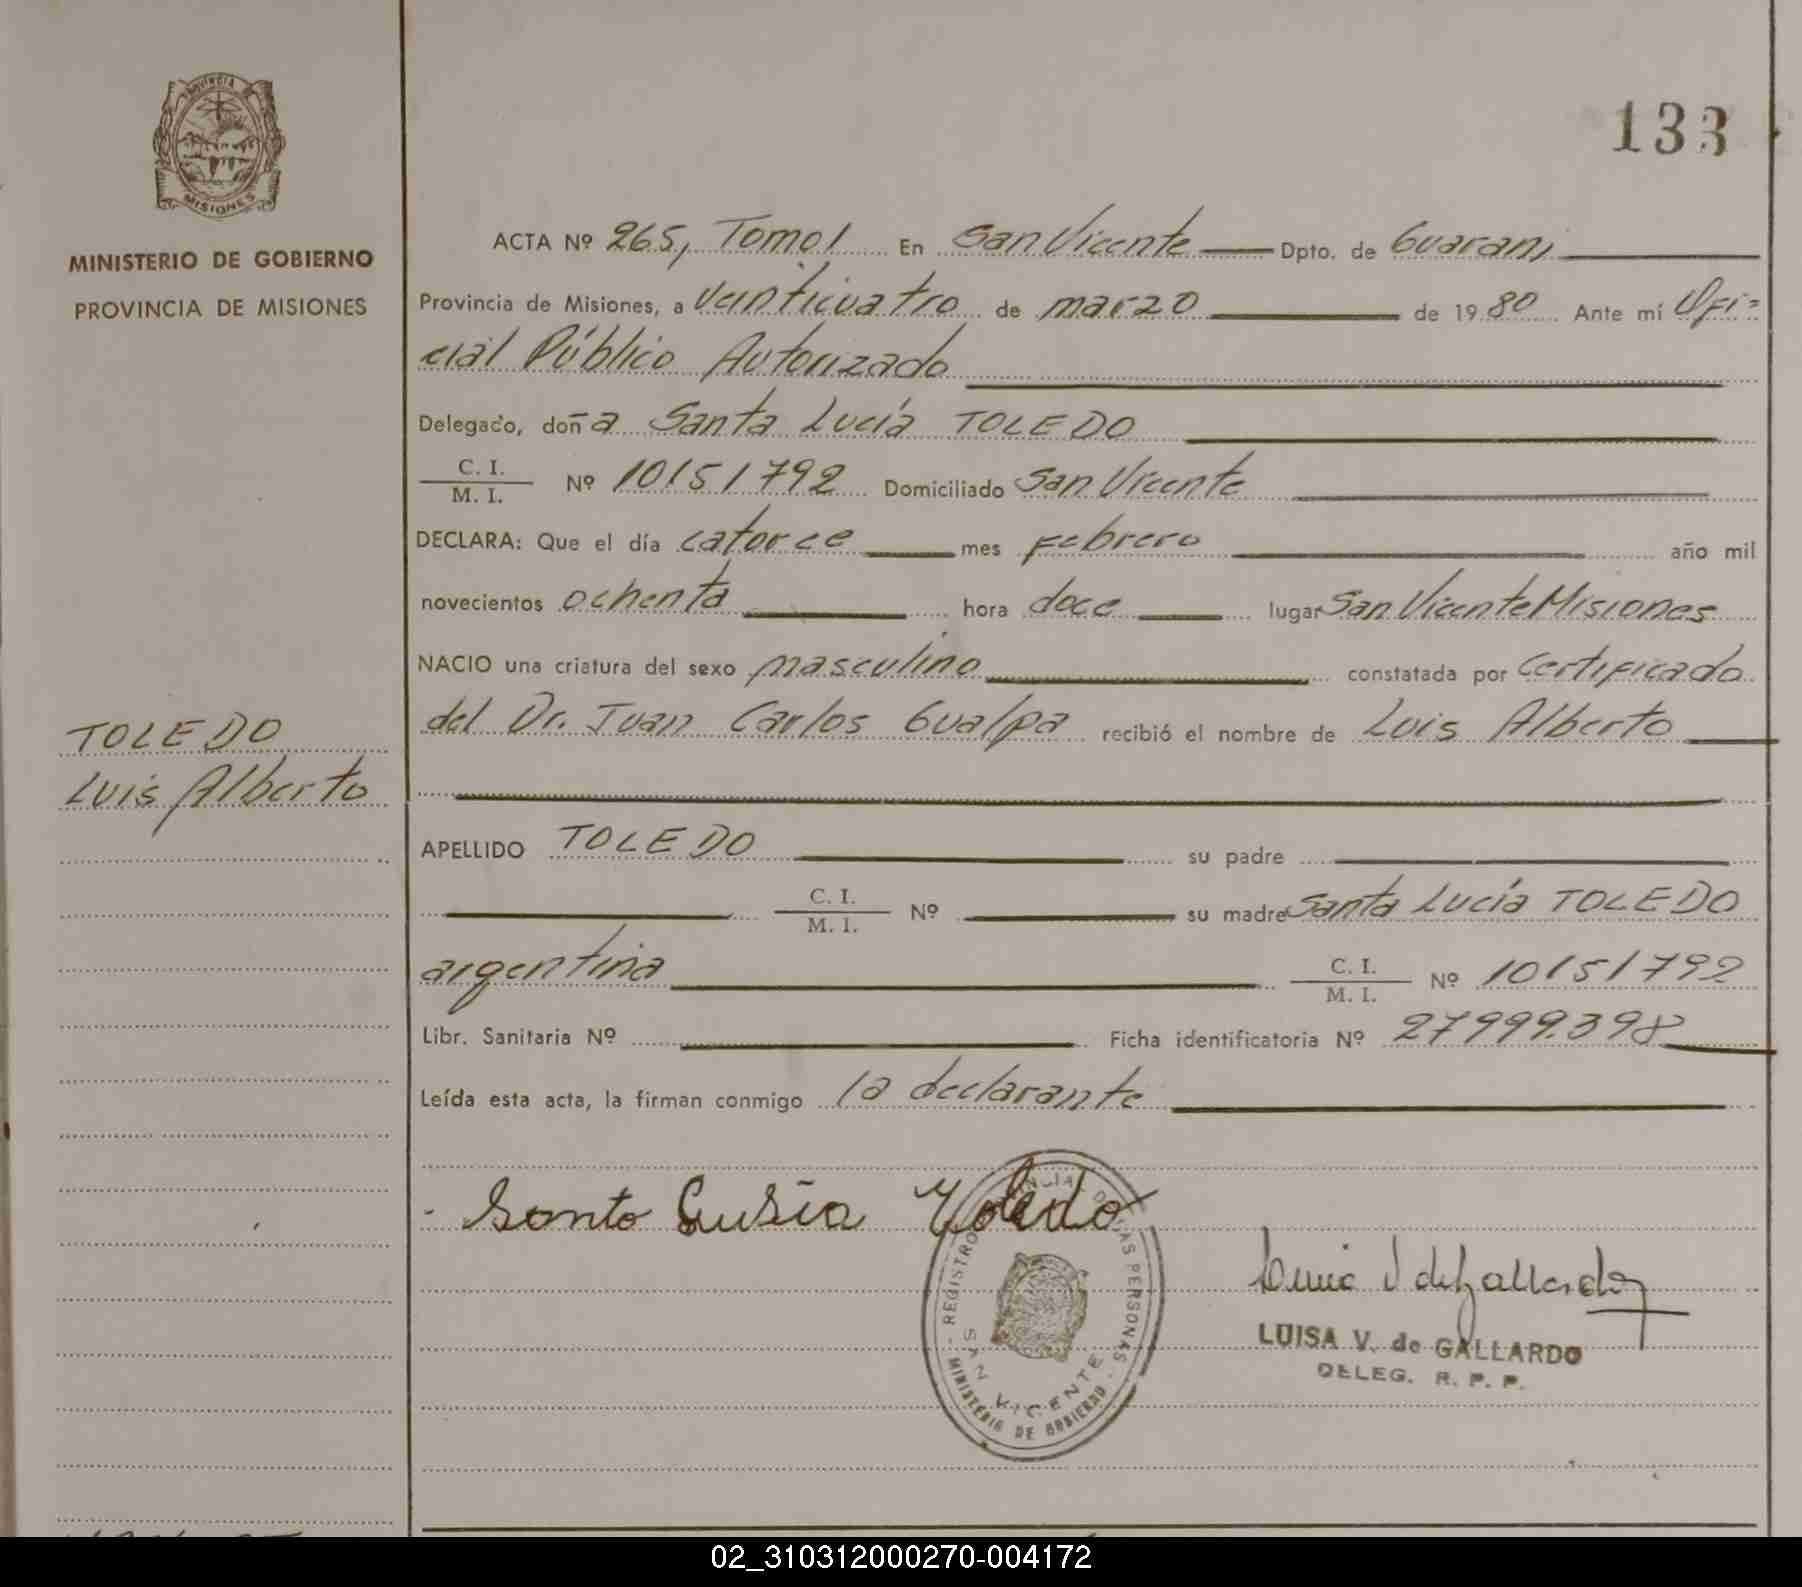 PROVINCIA DE
MISIONES
MINISTERIO DE GOBIERNO
PROVINCIA DE MISIONES
133
ACTA Nº 265, Tomo I En San Vicente Dpto. de Guaraní
Provincia de Misiones, a veinticuatro de marzo de 1980 Ante mí Ofi=
cial Público Autorizado
Delegado, doña Santa Lucía TOLEDO
C. I.
M. I. Nº 10151792 Domiciliado San Vicente
DECLARA: Que el día catorce mes febrero año mil
novecientos ochenta hora doce lugar San Vicente Misiones
NACIO una criatura del sexo masculino constatada por certificado
del Dr. Juan Carlos Gualpa recibió el nombre de Luis Alberto
TOLEDO
Luis Alberto
APELLIDO TOLEDO su padre
C. I.
M. I. Nº su madre Santa Lucía TOLEDO
argentina C. I.
M. I. Nº 10151792
Libr. Sanitaria Nº Ficha identificatoria Nº 27999.398
Leída esta acta, la firman conmigo la declarante
Santa Lusia Toledo
REGISTRO PROVINCIAL DE LAS PERSONAS
SAN VICENTE
MINISTERIO DE GOBIERNO
Luisa V de Gallardo
LUISA V. de GALLARDO
DELEG. R. P. P.
02_310312000270-004172